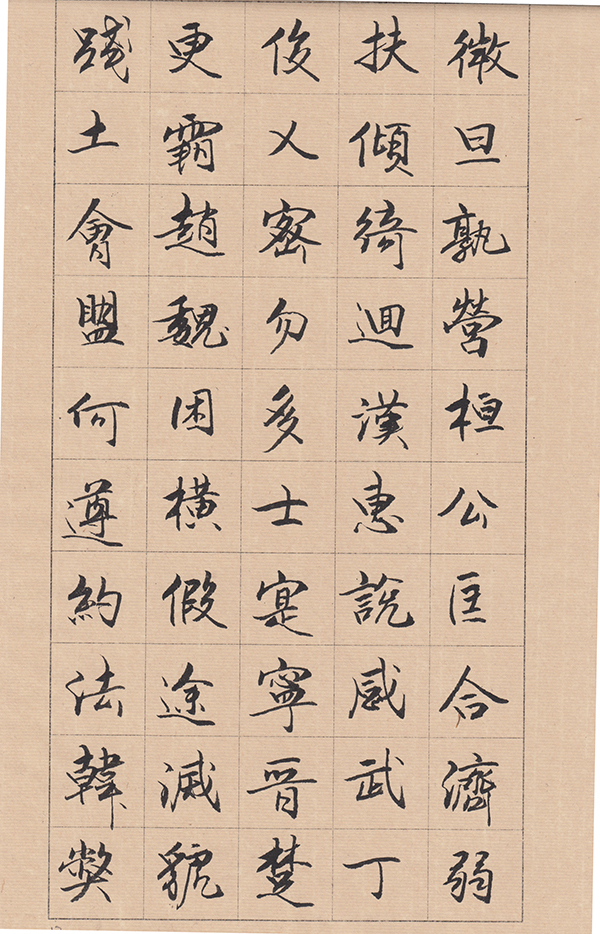 微旦孰營桓公匡合濟弱
扶傾綺迴漢惠說感武丁
俊乂密勿多士寔寧晉楚
更霸趙魏困橫假途滅虢
踐土會盟何遵約法韓弊